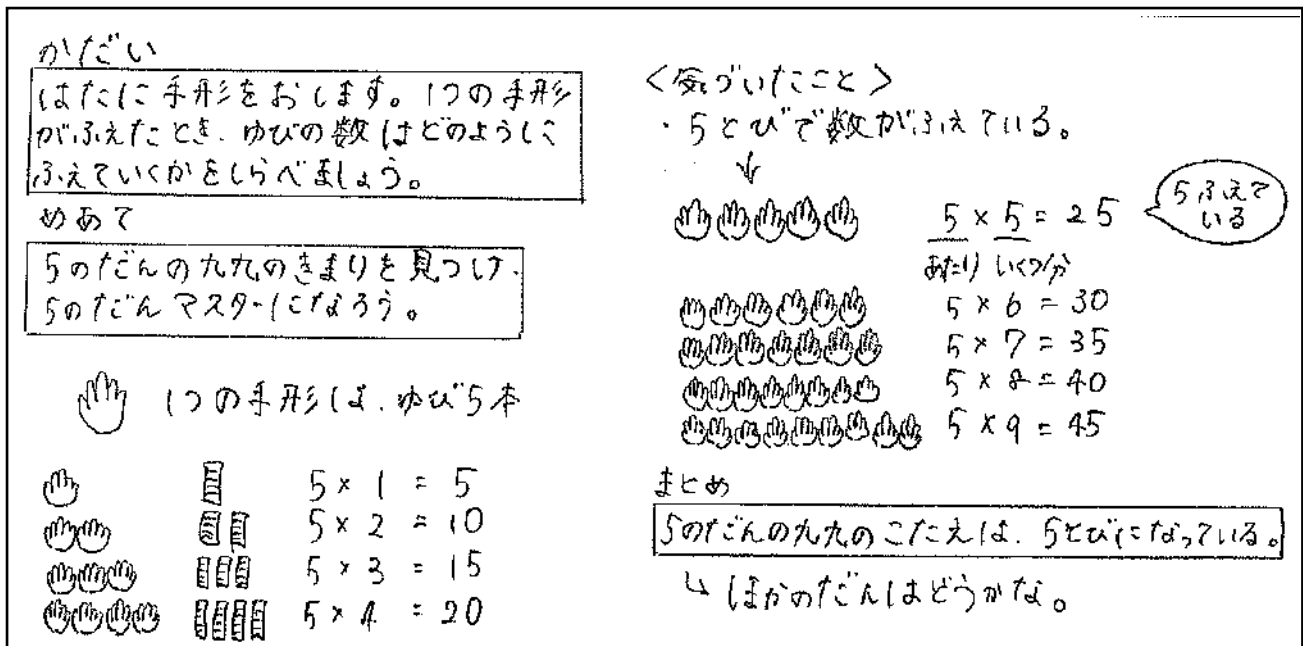 かだい
はたに手形をおします。1つの手形
がふえたとき、ゆびの数はどのように
ふえていくかをしらべましょう。
めあて
5のだんの九九のきまりを見つけ、
5のだんマスターになろう。
1つの手形は、ゆび5本
5 × 1 = 5
5 × 2 = 10
5 × 3 = 15
5 × 4 = 20
<気づいたこと>
・5とびで数がふえている。
↓
5 × 5 = 25
5ふえて
いる
あたり いくつ分
5 × 6 = 30
5 × 7 = 35
5 × 8 = 40
5 × 9 = 45
まとめ
5のだんの九九のこたえは、5とびになっている。
↳ ほかのだんはどうかな。